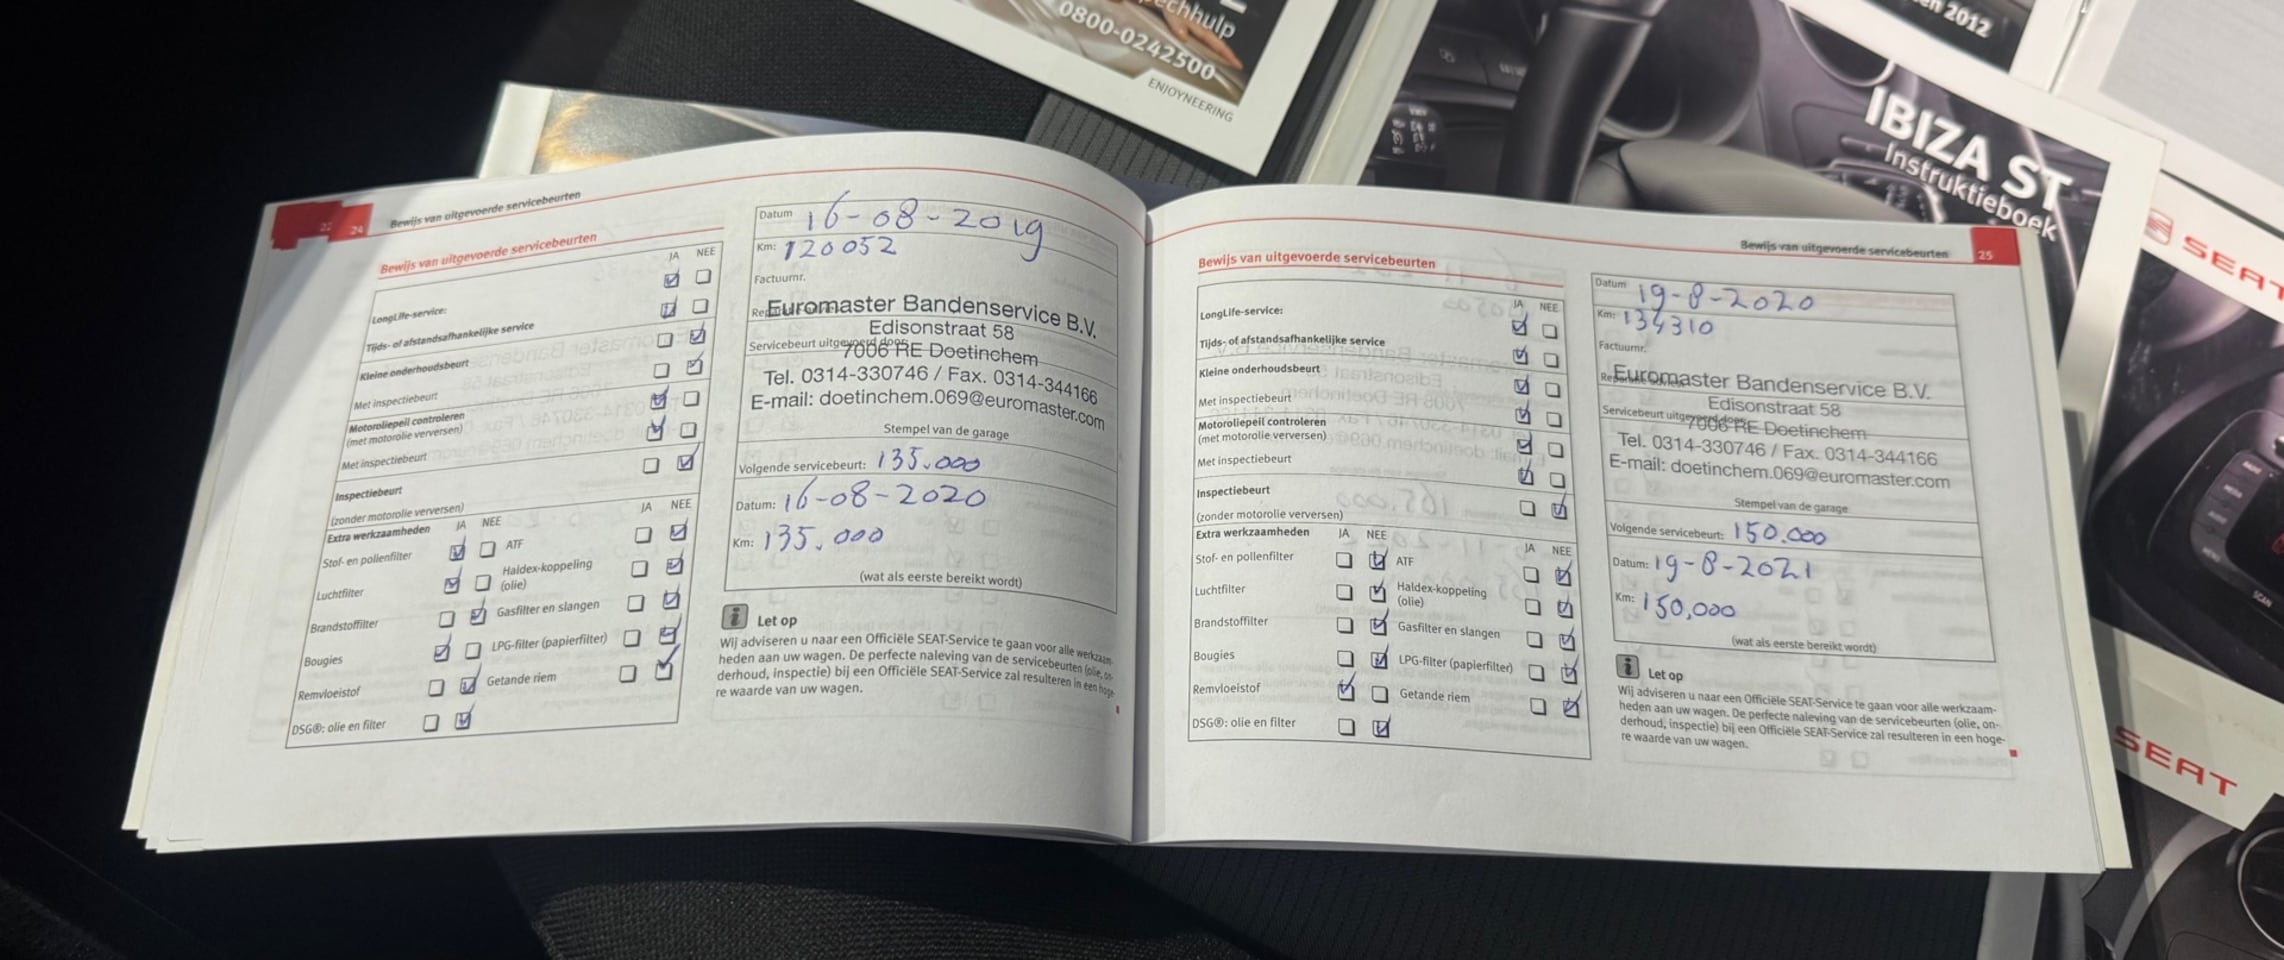 echhulp
0800-0242500
ENJOYNEERING
en 2012
IBIZA ST
Instruktieboek
SEAT
SEAT
24 Bewijs van uitgevoerde servicebeurten
Bewijs van uitgevoerde servicebeurten
JA NEE
LongLife-service:
Tijds- of afstandsafhankelijke service
Kleine onderhoudsbeurt
Met inspectiebeurt
Motoroliepeil controleren
(met motorolie verversen)
Met inspectiebeurt
Inspectiebeurt
(zonder motorolie verversen)
Extra werkzaamheden JA NEE JA NEE
Stof- en pollenfilter ATF
Luchtfilter Haldex-koppeling
(olie)
Brandstoffilter Gasfilter en slangen
Bougies LPG-filter (papierfilter)
Remvloeistof Getande riem
DSG®: olie en filter
Datum 16-08-2019
Km: 120052
Factuurnr.
Euromaster Bandenservice B.V.
Edisonstraat 58
Servicebeurt uitgevoerd door:
7006 RE Doetinchem
Tel. 0314-330746 / Fax. 0314-344166
E-mail: doetinchem.069@euromaster.com
Stempel van de garage
Volgende servicebeurt: 135.000
Datum: 16-08-2020
Km: 135.000
(wat als eerste bereikt wordt)
i Let op
Wij adviseren u naar een Officiële SEAT-Service te gaan voor alle werkzaam-
heden aan uw wagen. De perfecte naleving van de servicebeurten (olie, on-
derhoud, inspectie) bij een Officiële SEAT-Service zal resulteren in een hoge-
re waarde van uw wagen.
Bewijs van uitgevoerde servicebeurten 25
Bewijs van uitgevoerde servicebeurten
JA NEE
LongLife-service:
Tijds- of afstandsafhankelijke service
Kleine onderhoudsbeurt
Met inspectiebeurt
Motoroliepeil controleren
(met motorolie verversen)
Met inspectiebeurt
Inspectiebeurt
(zonder motorolie verversen)
Extra werkzaamheden JA NEE JA NEE
Stof- en pollenfilter ATF
Luchtfilter Haldex-koppeling
(olie)
Brandstoffilter Gasfilter en slangen
Bougies LPG-filter (papierfilter)
Remvloeistof Getande riem
DSG®: olie en filter
Datum 19-8-2020
Km: 134310
Factuurnr.
Euromaster Bandenservice B.V.
Edisonstraat 58
Servicebeurt uitgevoerd door:
7006 RE Doetinchem
Tel. 0314-330746 / Fax. 0314-344166
E-mail: doetinchem.069@euromaster.com
Stempel van de garage
Volgende servicebeurt: 150.000
Datum: 19-8-2021
Km: 150,000
(wat als eerste bereikt wordt)
i Let op
Wij adviseren u naar een Officiële SEAT-Service te gaan voor alle werkzaam-
heden aan uw wagen. De perfecte naleving van de servicebeurten (olie, on-
derhoud, inspectie) bij een Officiële SEAT-Service zal resulteren in een hoge-
re waarde van uw wagen.